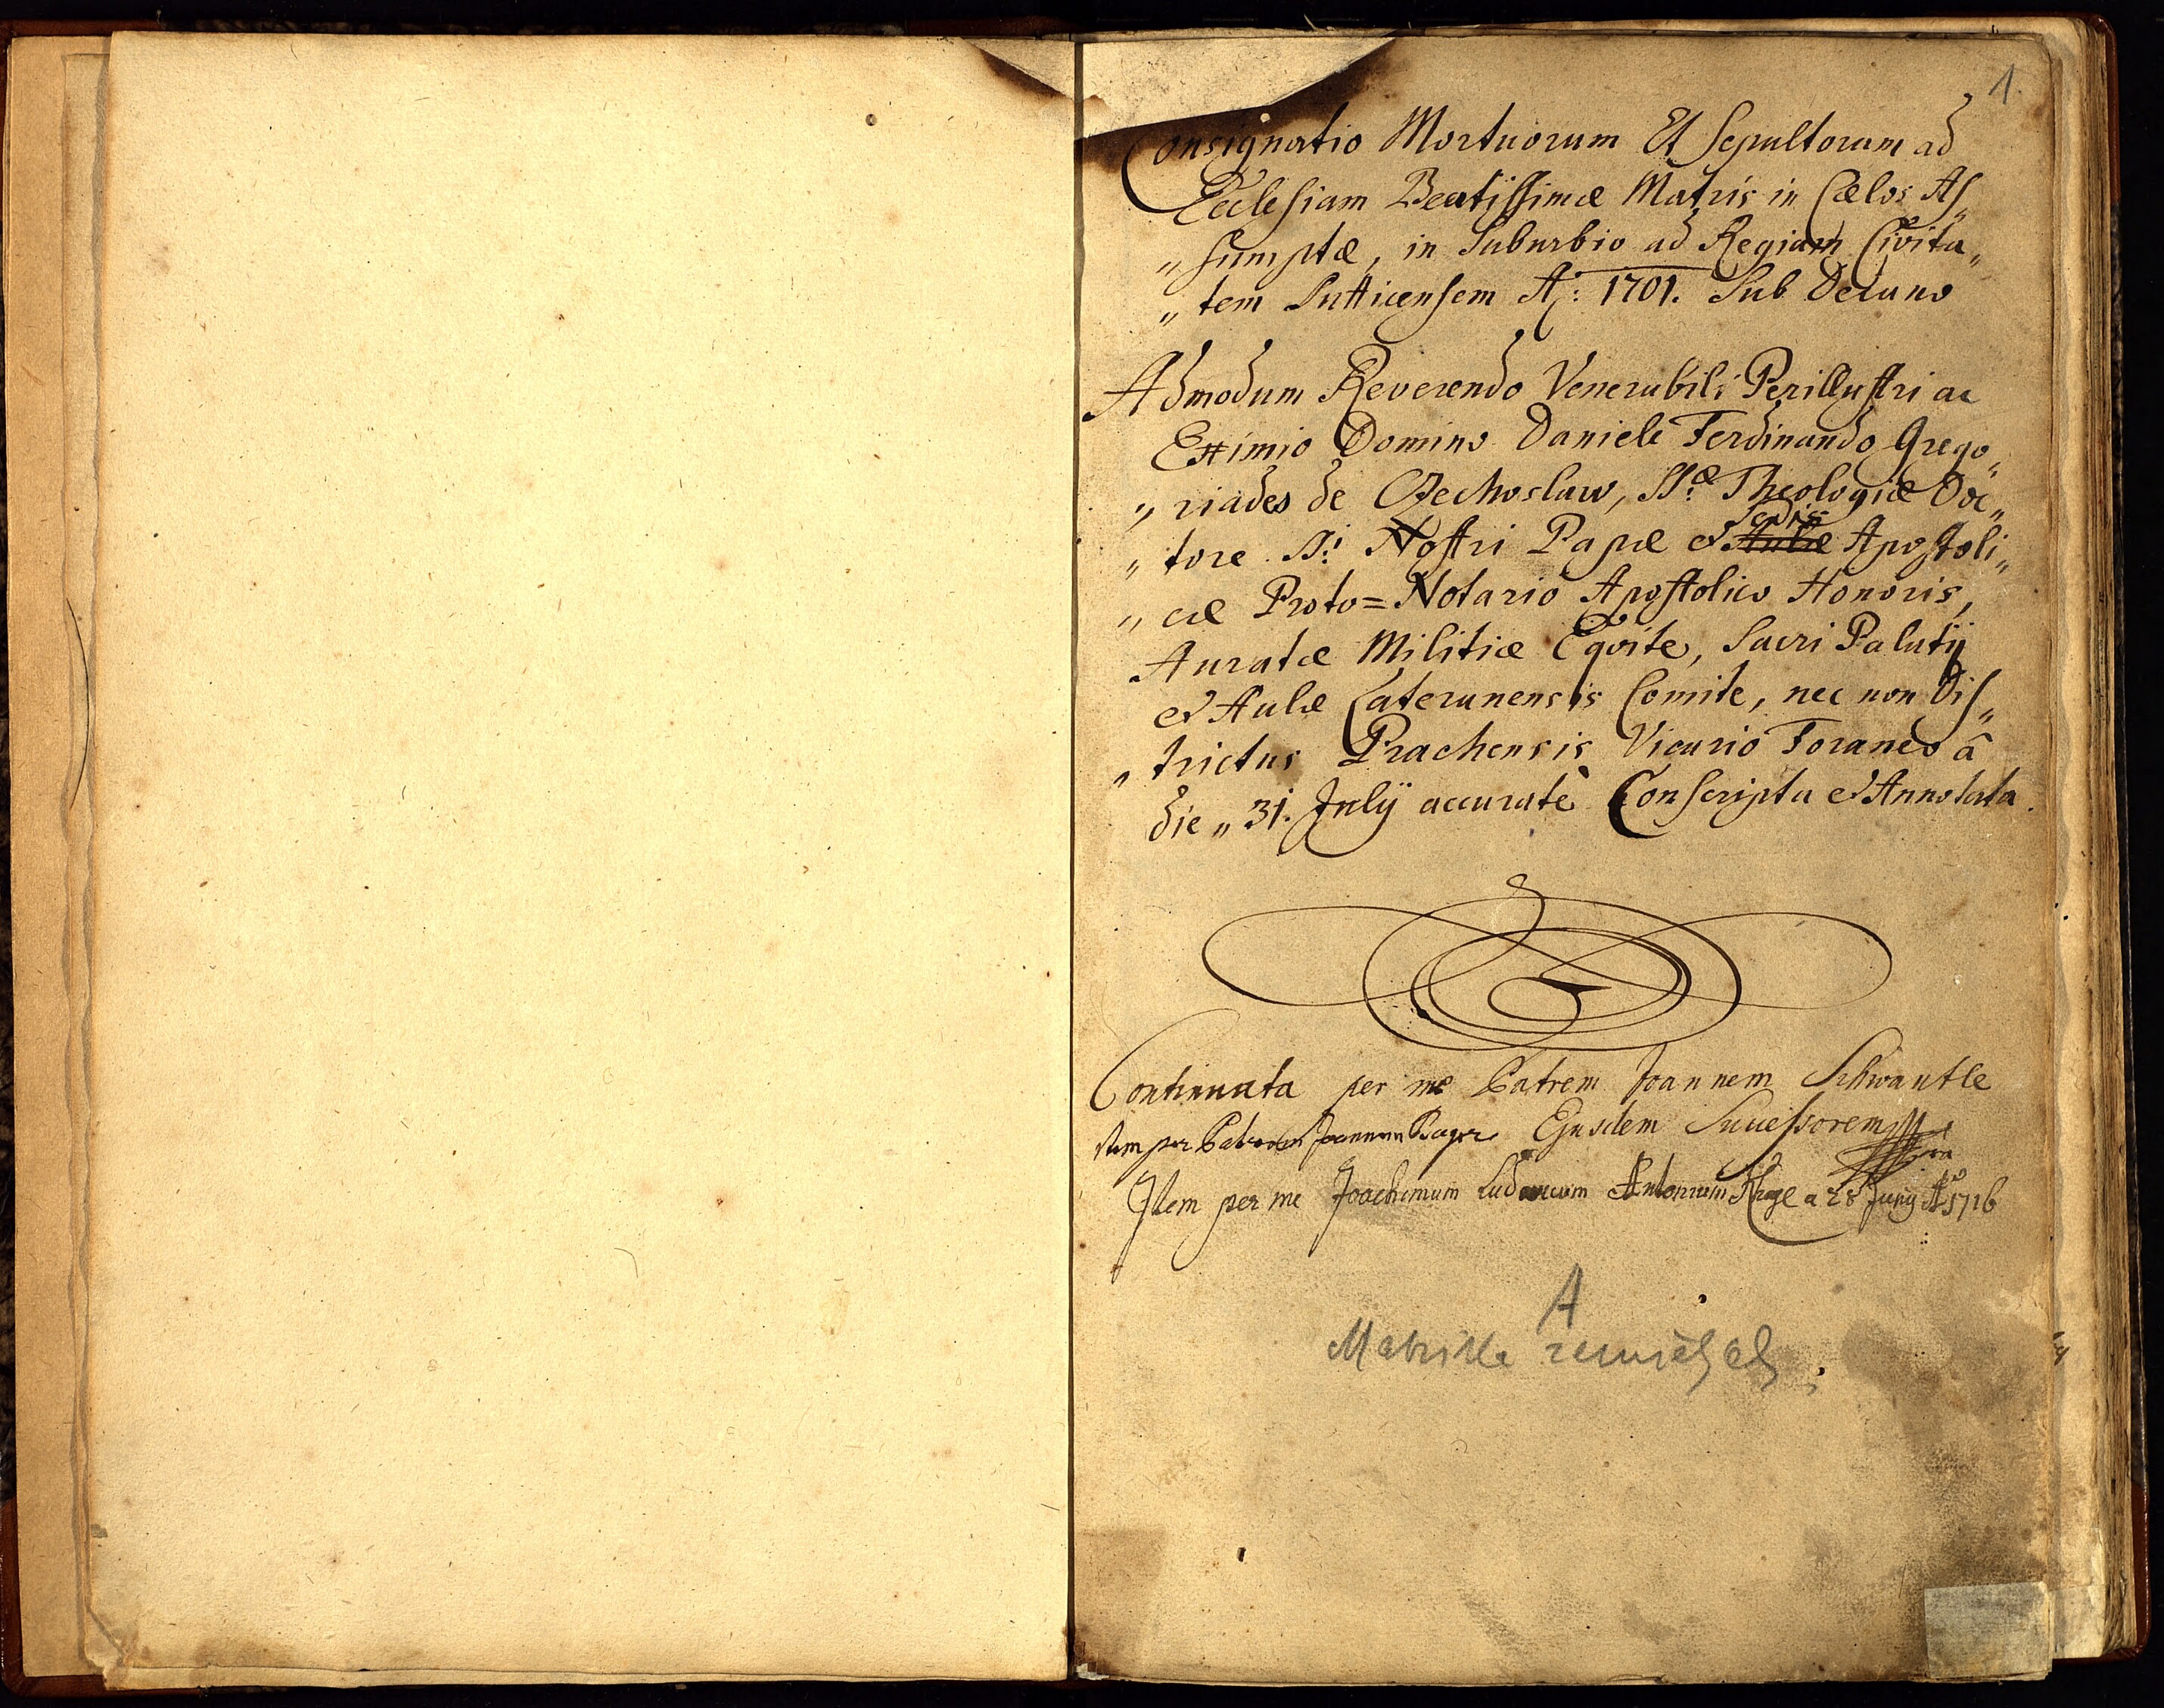 1.
Consignatio Mortuorum Et Sepultorum ad
Ecclesiam Beatissimæ Matris in Cælos As„
„sumptæ, in Suburbio ad Regiam Civita„
„tem Sutticensem Aͦ: 1701. Sub Decano
Admodum Reverendo Venerabili Perillustri ac
Eximio Domino Daniele Ferdinando Grego„
„riades de Czechoslaw, SS.æ Theologiæ Doc„
„tore SS.i Nostri Papæ et Aulæ Sedis Apostoli„
„cæ Proto=Notario Apostolico Honoris,
Auratæ Militiæ Eqvite, Sacri Palatij
et Aulæ Lateranensis Comite, nec non Dis„
„trictus Prachensis Vicario Foraneo â
die „ 31. Julij accuratè Conscripta et Annotata.
Continuata per me Patrem Joannem Schwantle
Item per Patrem Joannem Ejusdem Successorem
Item per me Joachimum Ludovicum Antonium a 28 Junij Aͦ 1716
A
Matrika zemřelých